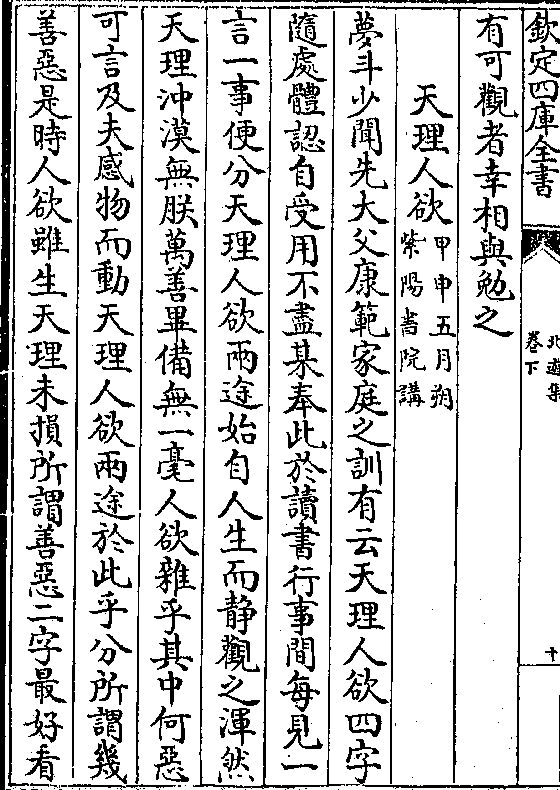 欽定四庫全書
北遊集
卷下
十
有可觀者幸相與勉之
天理人欲
甲申五月朔
紫陽書院講
夢斗少聞先大父康範家庭之訓有云天理人欲四字
隨處體認自受用不盡某奉此於讀書行事間每見一
言一事便分天理人欲兩途始自人生而静觀之渾然
天理沖漠無朕萬善畢備無一毫人欲雜乎其中何惡
可言及夫感物而動天理人欲兩途於此乎分所謂幾
善惡是時人欲雖生天理未損所謂善惡二字最好看